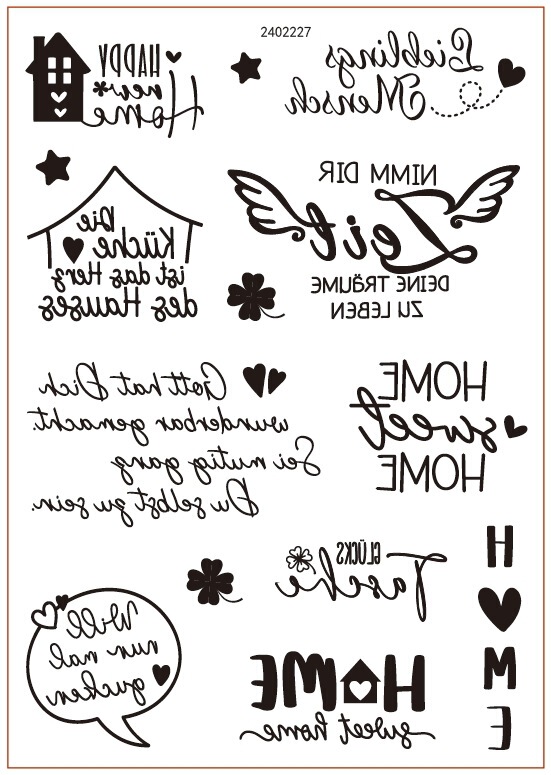 2402227
HAPPY
new
Home
Lieblings
Mensch
NIMM DIR
Zeit
DEINE TRÄUME
ZU LEBEN
Die
Küche
ist das Herz
des Hauses
Gott hat Dich
wunderbar gemacht.
Sei mutig ganz
Du selbst zu sein.
HOME
sweet
HOME
GLÜCKS
Tasche
Will
nun mal
gucken
HOME
sweet home
H
M
E